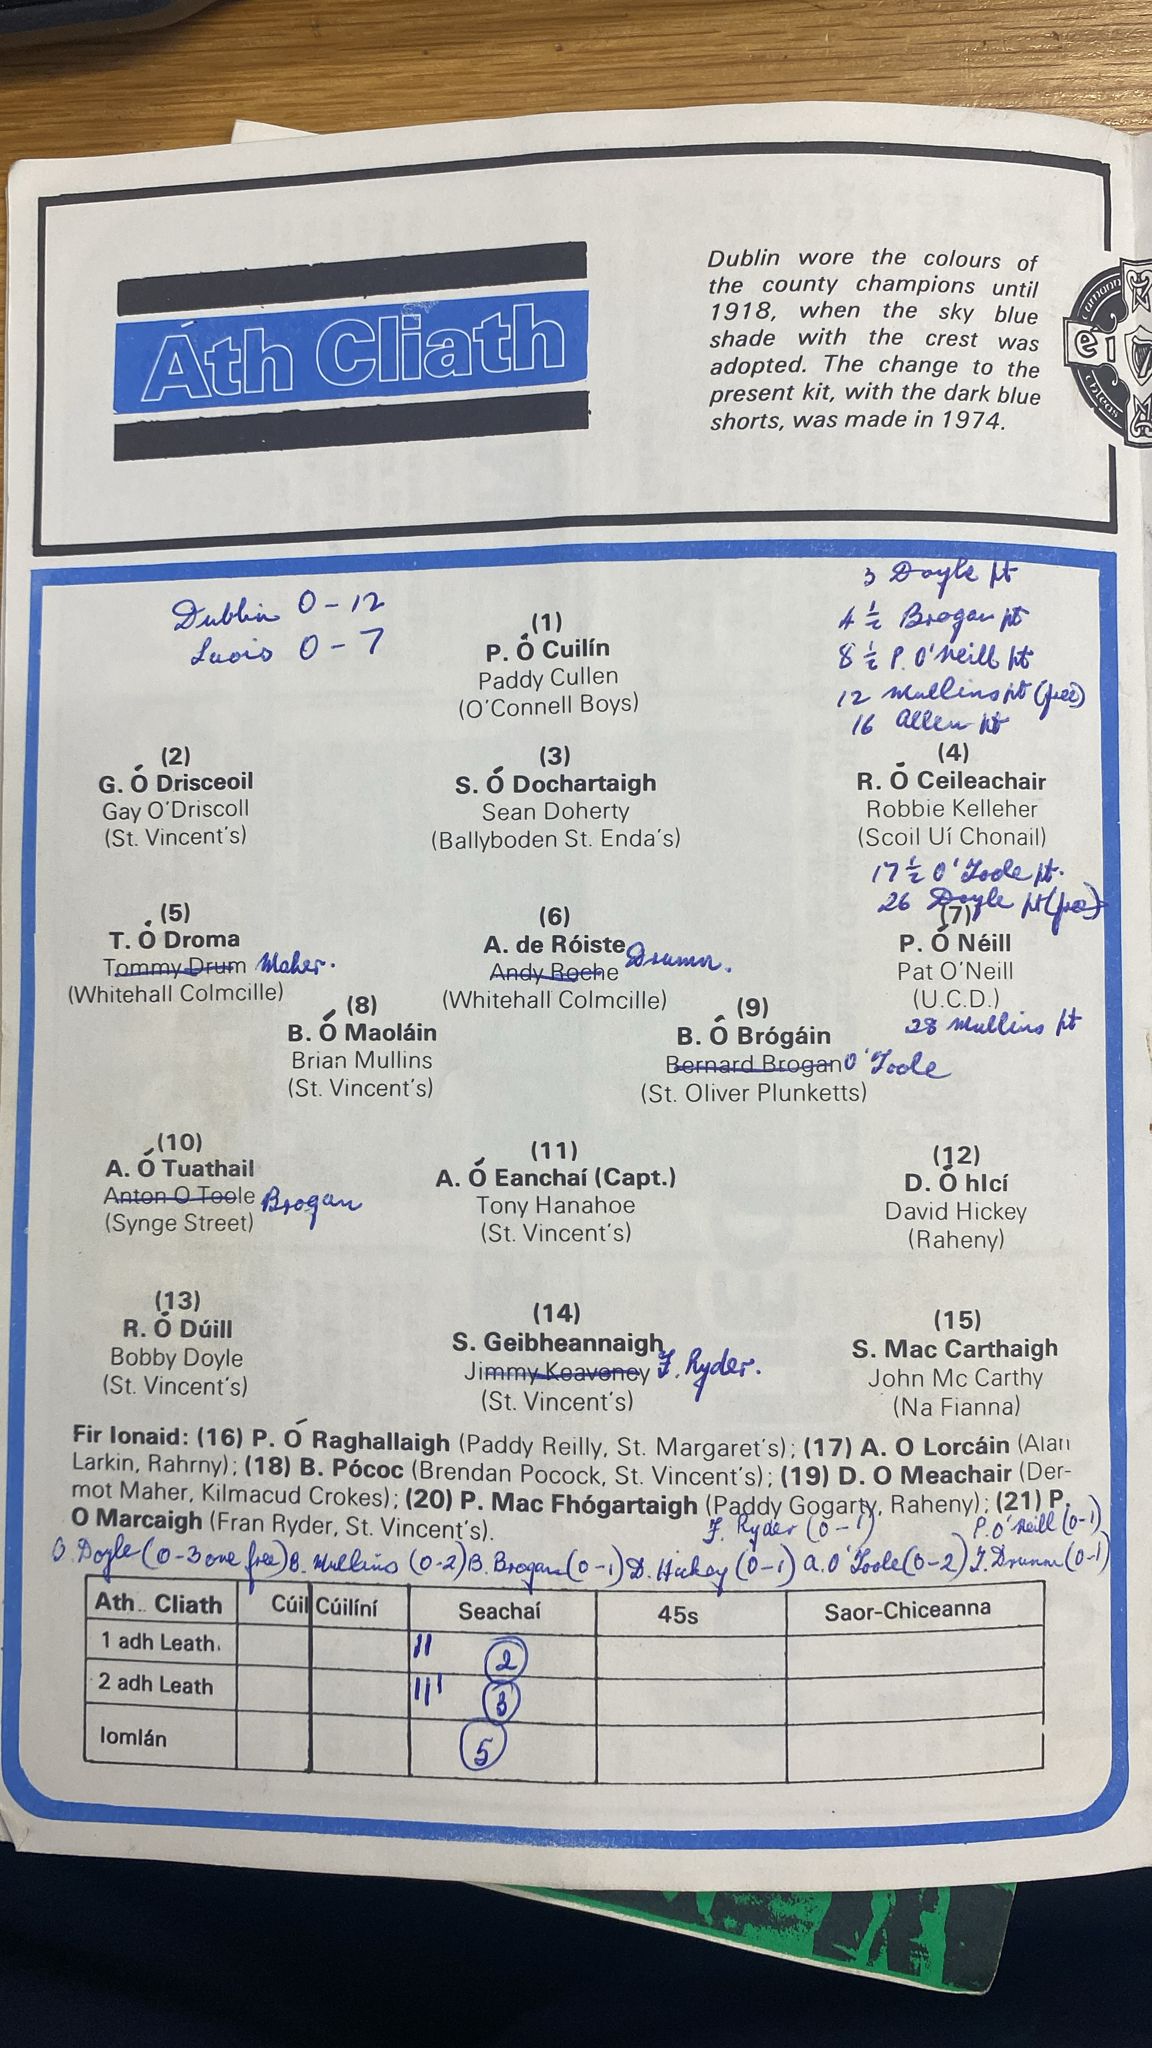 Áth Cliath
Dublin wore the colours of
the county champions until
1918, when the sky blue
shade with the crest was
adopted. The change to the
present kit, with the dark blue
shorts, was made in 1974.
Dublin 0-12
Laois 0-7
3 Doyle pt
4 ½ Brogan pt
8 ½ P. O'Neill pt
12 Mullins pt (free)
16 Allen pt
(1)
P. Ó Cuilín
Paddy Cullen
(O'Connell Boys)
(2)
G. Ó Drisceoil
Gay O'Driscoll
(St. Vincent's)
(3)
S. Ó Dochartaigh
Sean Doherty
(Ballyboden St. Enda's)
(4)
R. Ó Ceileachair
Robbie Kelleher
(Scoil Uí Chonail)
17 ½ O'Toole pt.
26 Doyle pt (free)
(5)
T. Ó Droma
Tommy Drum Maher.
(Whitehall Colmcille)
(6)
A. de Róiste
Andy Roche Drumm.
(Whitehall Colmcille)
(7)
P. Ó Néill
Pat O'Neill
(U.C.D.)
28 Mullins pt
(8)
B. Ó Maoláin
Brian Mullins
(St. Vincent's)
(9)
B. Ó Brógáin
Bernard Brogan O'Toole
(St. Oliver Plunketts)
(10)
A. Ó Tuathail
Anton O Toole Brogan
(Synge Street)
(11)
A. Ó Eanchaí (Capt.)
Tony Hanahoe
(St. Vincent's)
(12)
D. Ó hIcí
David Hickey
(Raheny)
(13)
R. Ó Dúill
Bobby Doyle
(St. Vincent's)
(14)
S. Geibheannaigh
Jimmy Keaveney F. Ryder.
(St. Vincent's)
(15)
S. Mac Carthaigh
John Mc Carthy
(Na Fianna)
Fir Ionaid: (16) P. Ó Raghallaigh (Paddy Reilly, St. Margaret's); (17) A. O Lorcáin (Alan
Larkin, Rahrny); (18) B. Pócoc (Brendan Pocock, St. Vincent's); (19) D. O Meachair (Der-
mot Maher, Kilmacud Crokes); (20) P. Mac Fhógartaigh (Paddy Gogarty, Raheny); (21) P.
O Marcaigh (Fran Ryder, St. Vincent's).
F. Ryder (0-1) P. O'Neill (0-1)
Doyle (0-3 one free) B. Mullins (0-2) B. Brogan (0-1) D. Hickey (0-1) A. O'Toole (0-2) T. Drumm (0-1)
Ath.. Cliath Cúil Cúilíní Seachaí 45s Saor-Chiceanna
1 adh Leath. 2
2 adh Leath 3
Iomlán 5